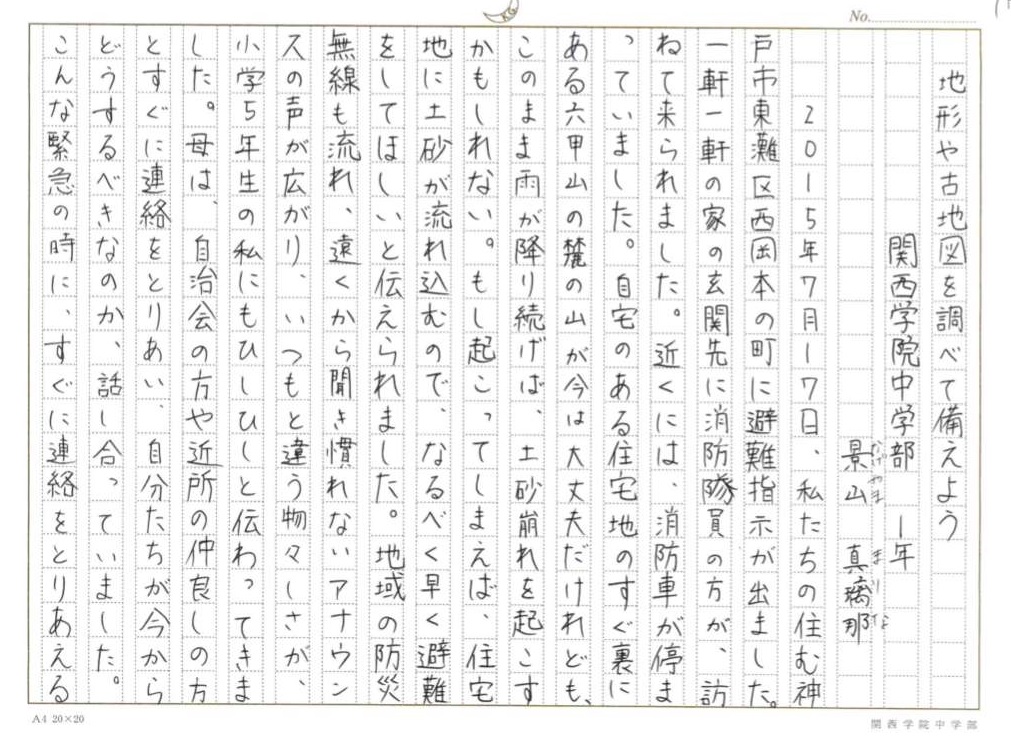 No.
地形や古地図を調べて備えよう
関西学院中学部 1年
景山 真璃那
かげやま まりな
2015年7月17日、私たちの住む神
戸市東灘区西岡本の町に避難指示が出ました。
一軒一軒の家の玄関先に消防隊員の方が、訪
ねて来られました。近くには、消防車が停ま
っていました。自宅のある住宅地のすぐ裏に
ある六甲山の麓の山が今は大丈夫だけれども、
このまま雨が降り続けば、土砂崩れを起こす
かもしれない。もし起こってしまえば、住宅
地に土砂が流れ込むので、なるべく早く避難
をしてほしいと伝えられました。地域の防災
無線も流れ、遠くから聞き慣れないアナウン
スの声が広がり、いつもと違う物々しさが、
小学5年生の私にもひしひしと伝わってきま
した。母は、自治会の方や近所の仲良しの方
とすぐに連絡をとりあい、自分たちが今から
どうするべきなのか、話し合っていました。
こんな緊急の時に、すぐに連絡をとりあえる
A4 20×20
関西学院中学部